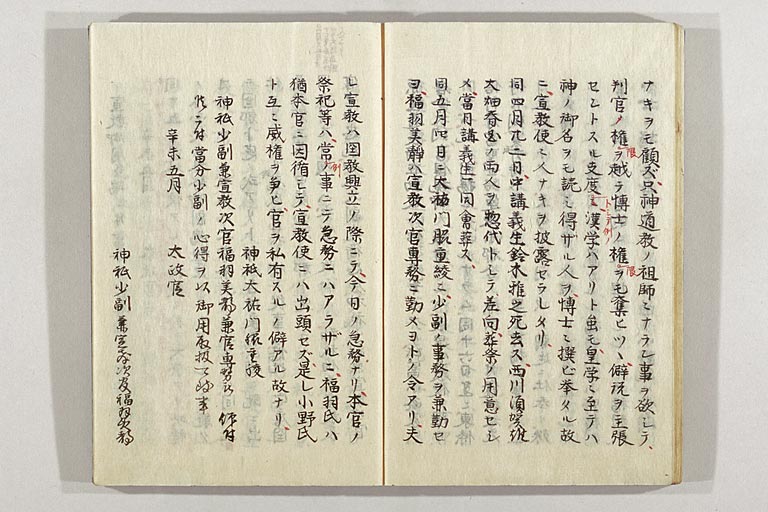 ナキヲモ顧ズ只神道教ノ祖師ニナラン事ヲ欲シテ、
判官ノ権ヲ越テ博士ノ権ヲモ奪ヒツヽ僻説ヲ主張
限
限
セントスル支度ニ漢学ハアリト虽モ皇学ニ至テハ
神ノ御名ヲモ読ミ得ザル人ヲ博士ニ撰ビ挙タル故
ニ宣教使ニ人ナキヲ披露セラレタリ
同四月廿二日中講義生鈴木推之死去ス西川須賀雄
大畑春国ノ両人ヲ惣代トシテ差向葬祭ノ用意セシ
メ當日講義生一同會葬ス
同五月四日ニ大祐門脇重綾ニ少副ノ事務ヲ兼勤セ
ヨ福羽美静ハ宣教次官専務ニ勤メヨトノ令アリ夫
レ宣教ハ国教興立ノ際ニテ今日ノ急務ナリ本官ノ
祭祀等ハ常ノ事ニテ急務ニハアラザルニ福羽氏ハ
例
猶本官ニ因循シテ宣教使ニハ出頭セズ是レ小野氏
ト互ニ威権ヲ争ヒ官ヲ私有スルノ僻アル故ナリ
神祇大祐門脇重綾
神祇少副兼宣教次官福羽美静兼官専務被 仰付
候ニ付當分少副ノ心得ヲ以御用取扱可致事
辛未五月 太政官
神祇少副兼宣教次官福羽美静